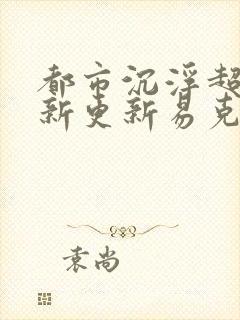 都市沉浮超
新更新易克
袁尚